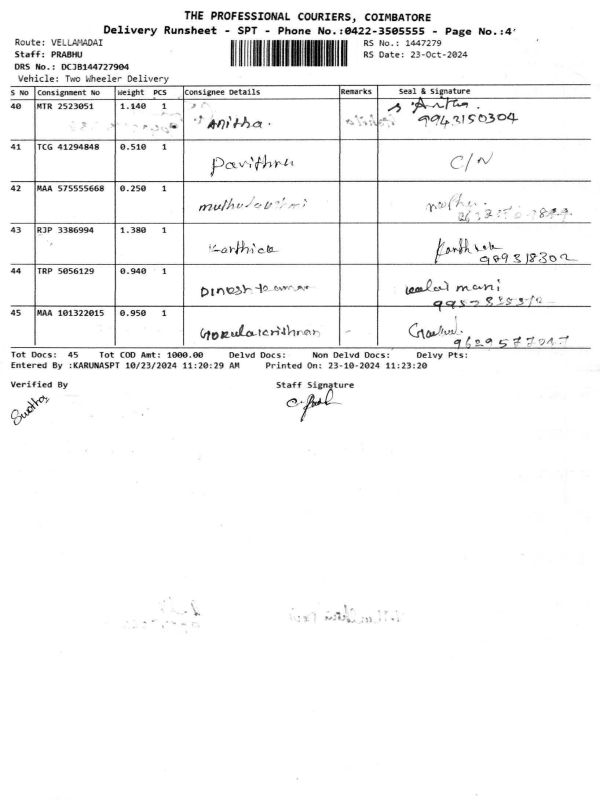 THE PROFESSIONAL COURIERS, COIMBATORE
Delivery Runsheet - SPT - Phone No.:0422-3505555 - Page No.:4
Route: VELLAMADAI
RS No.: 1447279
Staff: PRABHU
RS Date: 23-Oct-2024
DRS No.: DCJB144727904
Vehicle: Two Wheeler Delivery
S No Consignment No Weight PCS Consignee Details Remarks Seal & Signature
40 MTR 2523051 1.140 1 Anitha. S Anitha. 9943150304
41 TCG 41294848 0.510 1 Pavithra C/N
42 MAA 575555668 0.250 1 muthulakshmi
43 RJP 3386994 1.380 1 Karthick Karthick 989318302
44 TRP 5056129 0.940 1 Dinesh kumar mani
45 MAA 101322015 0.950 1 Gokulakrishnan - Gokul.
Tot Docs: 45 Tot COD Amt: 1000.00 Delvd Docs: Non Delvd Docs: Delvy Pts:
Entered By :KARUNASPT 10/23/2024 11:20:29 AM Printed On: 23-10-2024 11:23:20
Verified By Staff Signature
Swathy